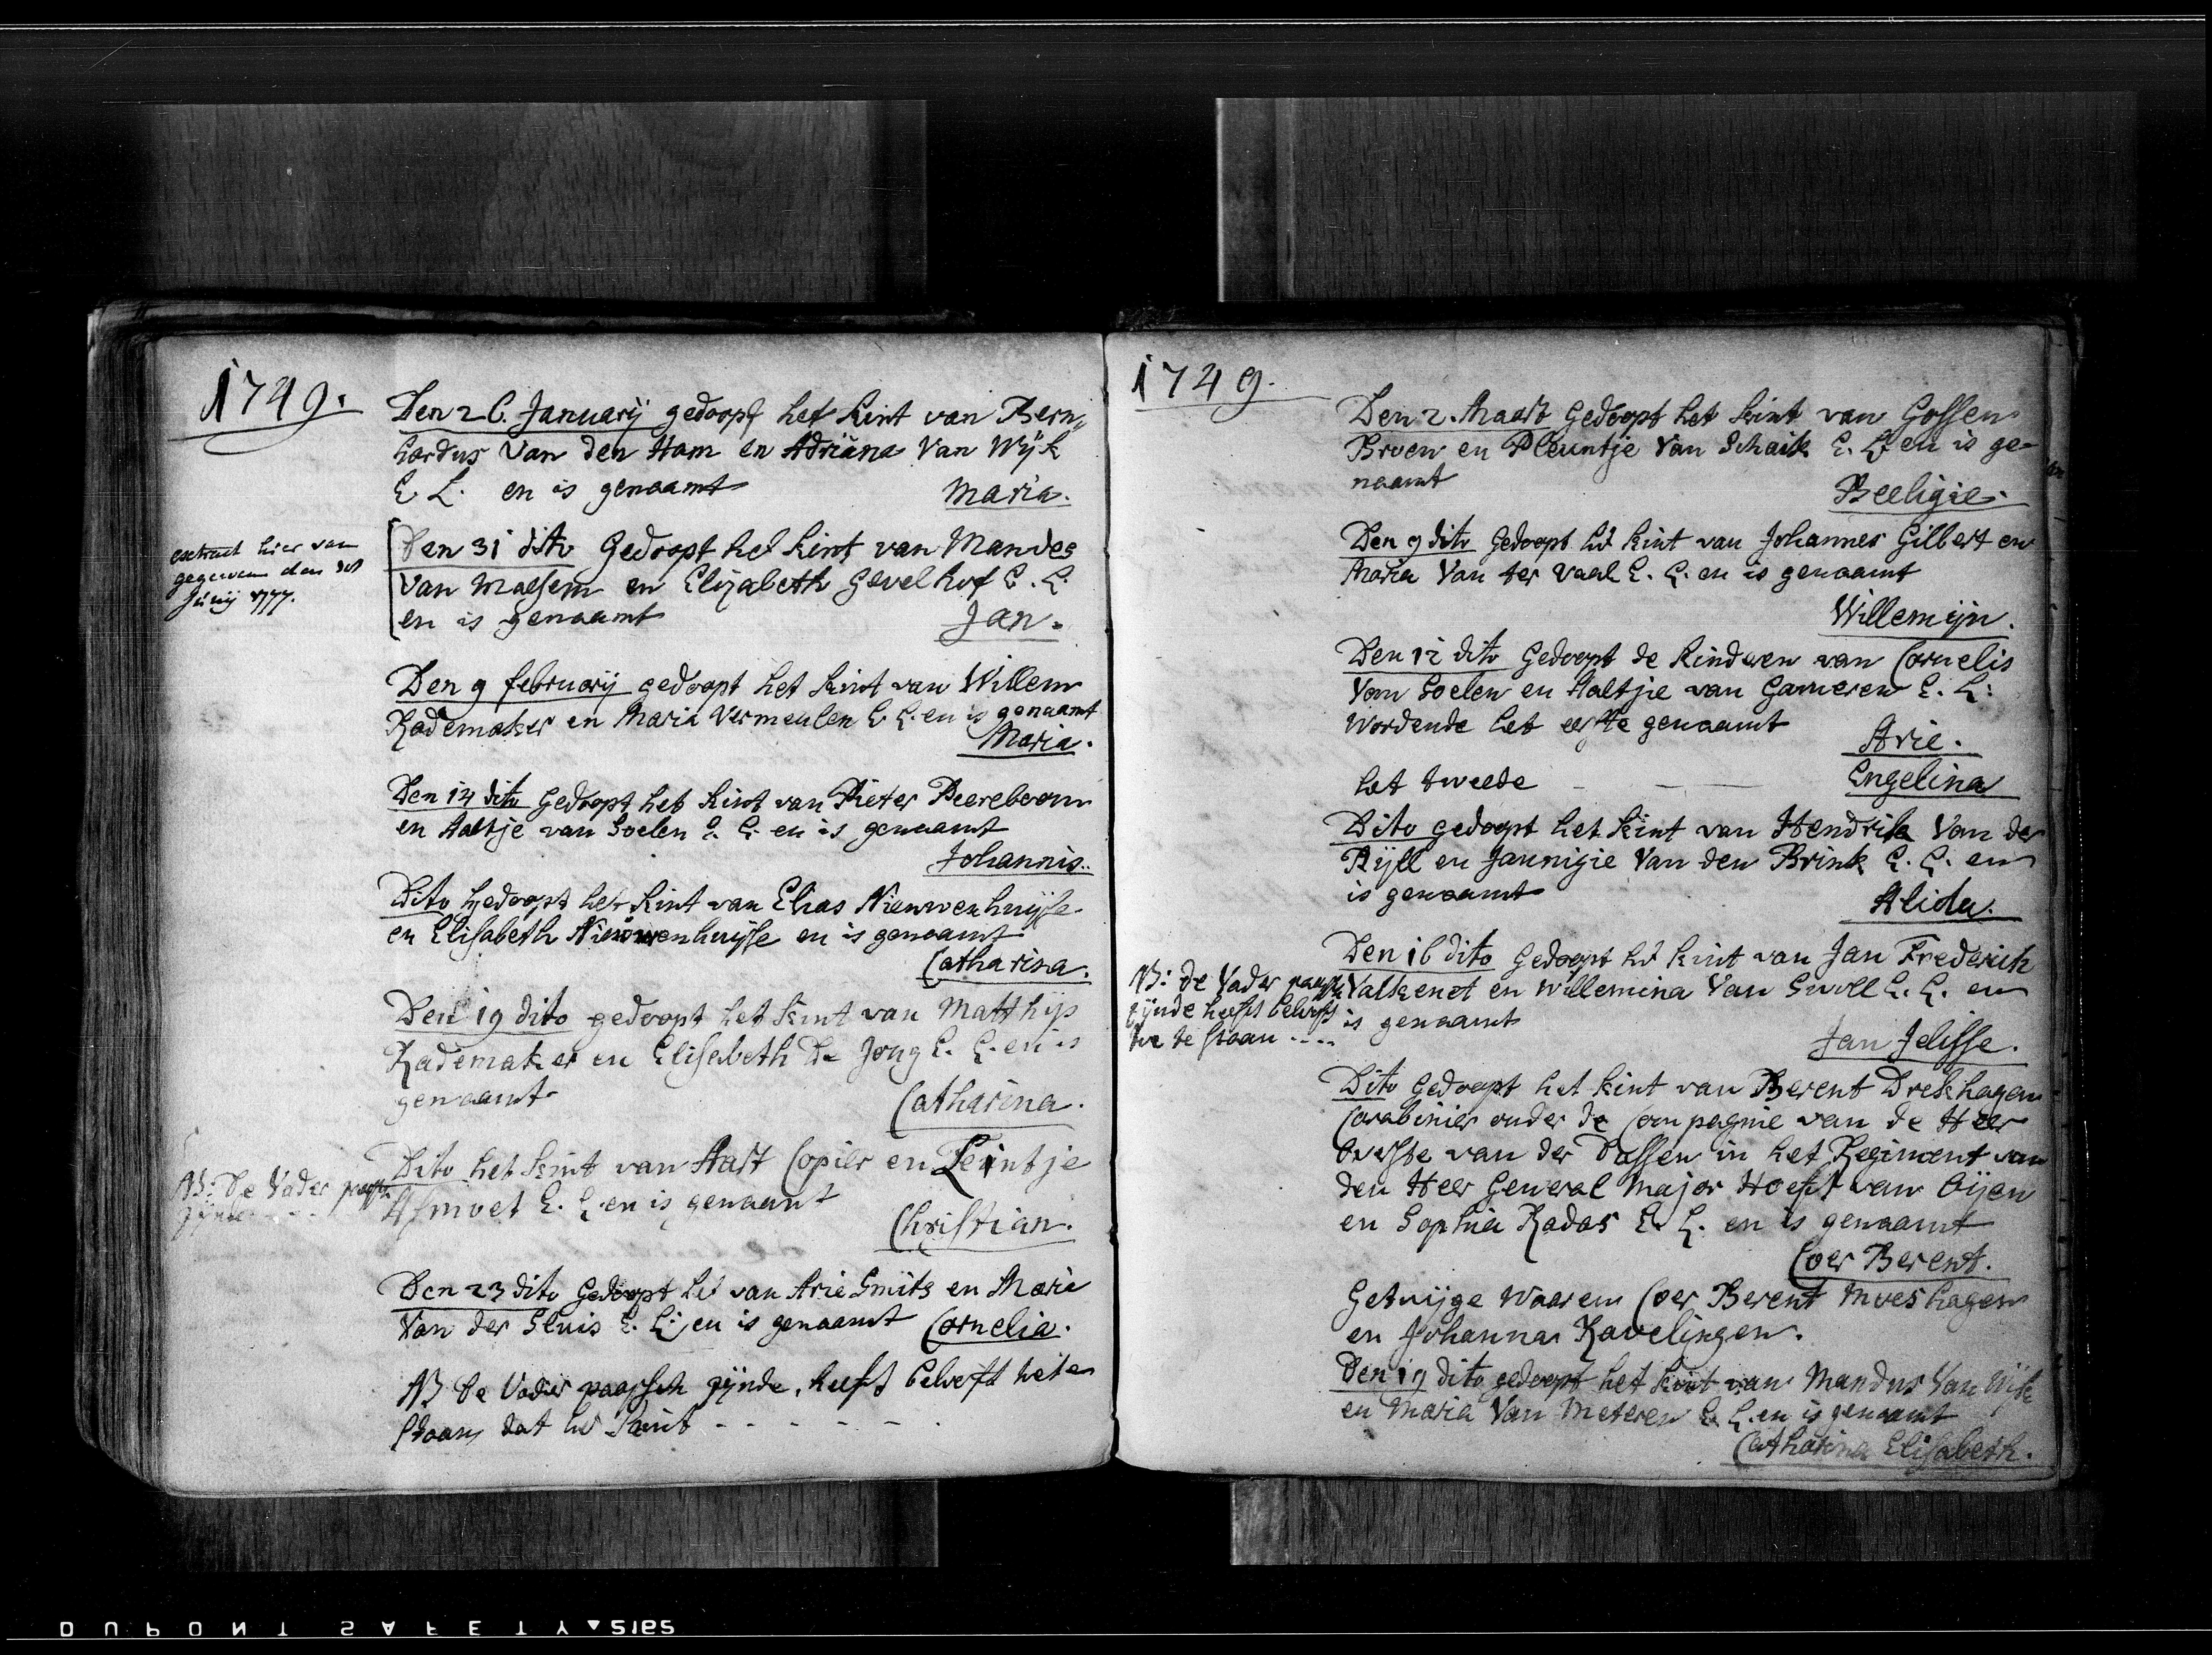 1749.
Den 26. Januarij gedoopt het kint van Bern„
hardus Van den Ham en Adriana Van Wijk
E. L. en is genaamt
Maria.
extract hier van
gegeven den
Junij 1777.
Den 31 dito Gedoopt het kint van Mandes
van Maesem en Elizabeth Gevelhof E. L.
en is genaamt
Jan.
Den 9 februarij gedoopt het kint van Willem
Rademaker en Maria Vermeulen E. L. en is genaamt
Maria.
Den 14 dito Gedoopt het kint van Pieter Peereboom
en Aaltje van Soelen E. L. en is genaamt
Johannis.
Dito Gedoopt het kint van Elias Nieuwenhuijse
en Elisabeth Nieuwenhuijse en is genaamt
Catharina.
Den 19 dito gedoopt het kint van Matthijs
Rademaker en Elisabeth De Jong E. L. en is
genaamt
Catharina.
NB: De Vader
zijnde
Dito het kint van Aart Copier en Teintje
Asmoet E. L. en is genaamt
Christian.
Den 23 dito Gedoopt het van Arie Smits en Maria
Van der Sluis E. L. en is genaamt Cornelia.
NB De Vader paapsch zijnde, heeft belooft toe te
staan dat het kint - - - - - -
1749.
Den 2. Maart Gedoopt het kint van Gossen
Broen en Pleuntje Van Schaik E. L. en is ge-
naamt
Beeligie.
Den 9 dito Gedoopt het kint van Johannes Gilbert en
Maria Van ter Vaal E. L. en is genaamt
Willemijn.
Den 12 dito Gedoopt de kinderen van Cornelis
Van Soelen en Aaltje van Gameren E. L:
wordende het eerste genaamt
Arie.
het tweede - - -
Engelina
Dito gedoopt het kint van Hendrik Van der
Pijll en Jannigie Van den Brink E. L. en
is genaamt
Alida.
NB: De Vader paapsch
zijnde heeft belooft
toe te staan ....
Den 16 dito Gedoopt het kint van Jan Frederich
Valkenet en Willemina Van Swoll E. L. en
is genaamt
Jan Jelisse.
Dito Gedoopt het kint van Berent Drekhagen
Carabinier onder de Compagnie van de Heer
Overste van der Dussen in het Regiment van
den Heer General Major Hoeft van Oijen
en Sophia Radas E. L. en is genaamt
Coer Berent.
Getuijge Waaren Coer Berent Moeshagen
en Johanna Ravelingen.
Den 19 dito gedoopt het kint van Mandus Van Wijk
en Maria Van Meteren E. L. en is genaamt
Catharina Elisabeth.
DUPONT SAFETY 5165